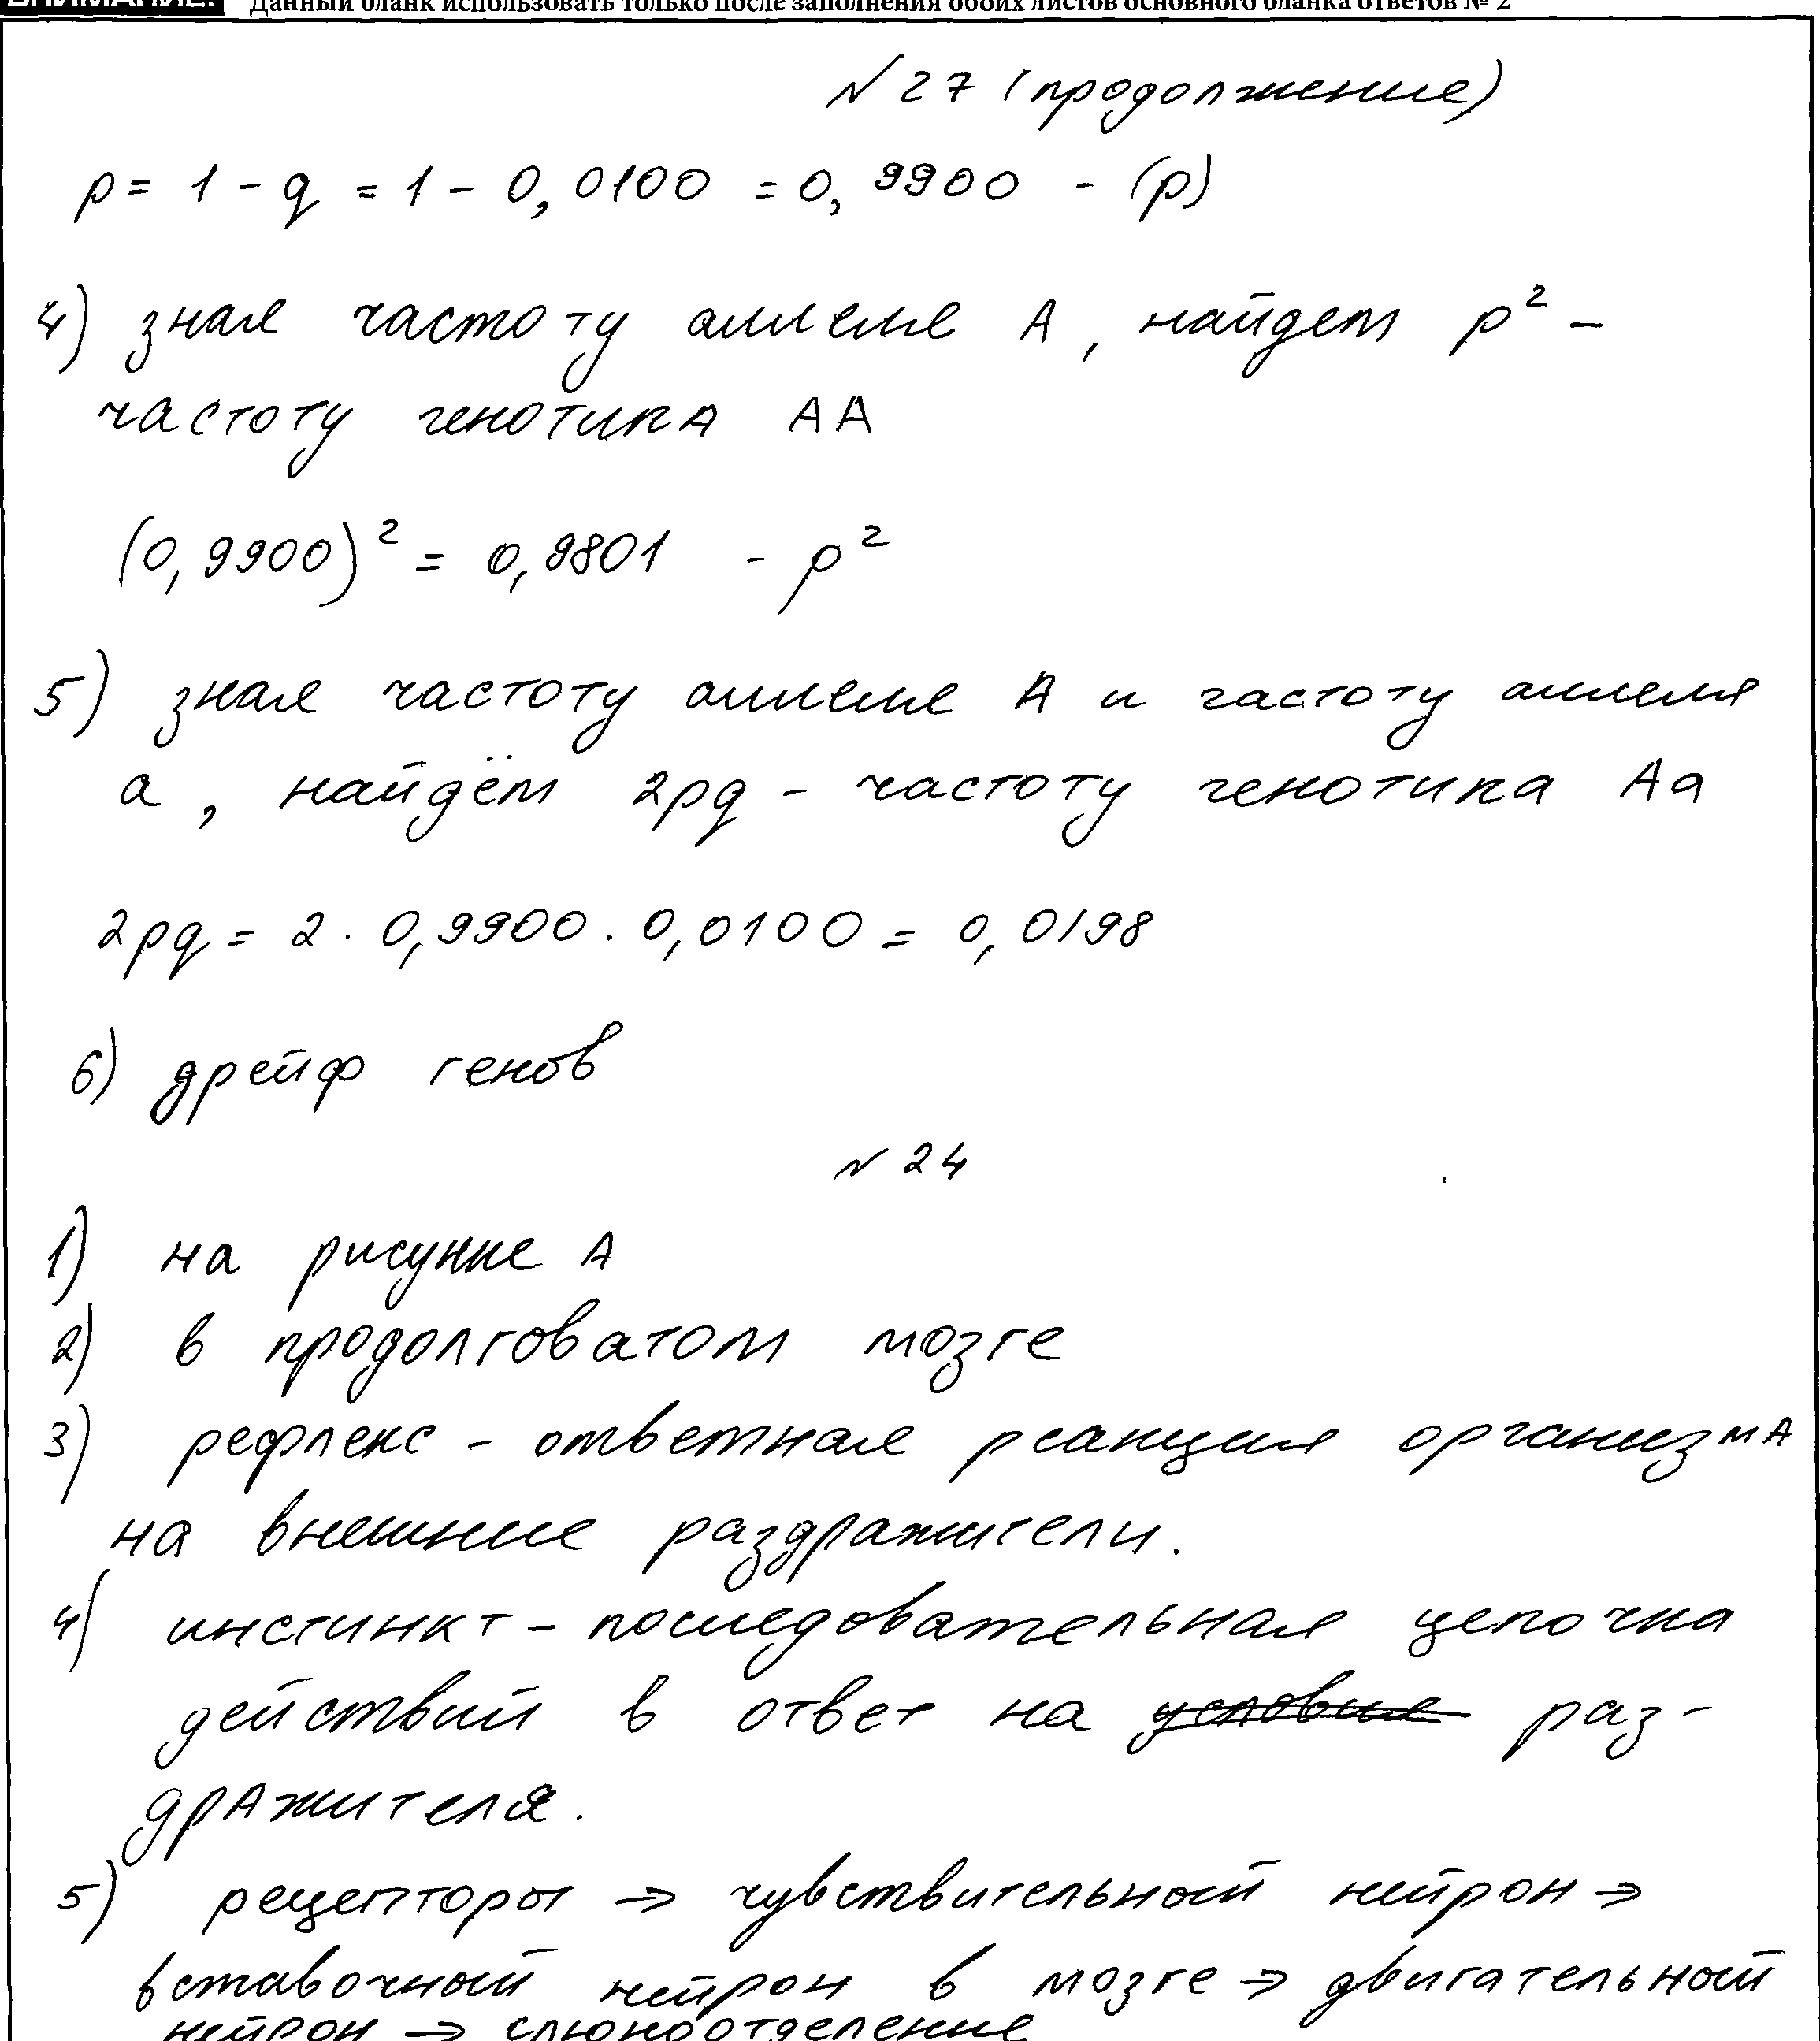 ВНИМАНИЕ! Данный бланк использовать только после заполнения обоих листов основного бланка ответов № 2
№ 27 (продолжение)
p = 1 - q = 1 - 0,0100 = 0,9900 - (p)
4) зная частоту аллеля А, найдем p² -
частоту генотипа АА
(0,9900)² = 0,9801 - p²
5) зная частоту аллеля А и частоту аллеля
а, найдём 2pq - частоту генотипа Аа
2pq = 2 · 0,9900 · 0,0100 = 0,0198
6) дрейф генов
№ 24
1) на рисунке А
2) в продолговатом мозге
3) рефлекс - ответная реакция организма
на внешние раздражители.
4) инстинкт - последовательная цепочка
действий в ответ на условные раз-
дражителя.
5) рецепторы → чувствительный нейрон →
вставочный нейрон в мозге → двигательный
нейрон → слюноотделение